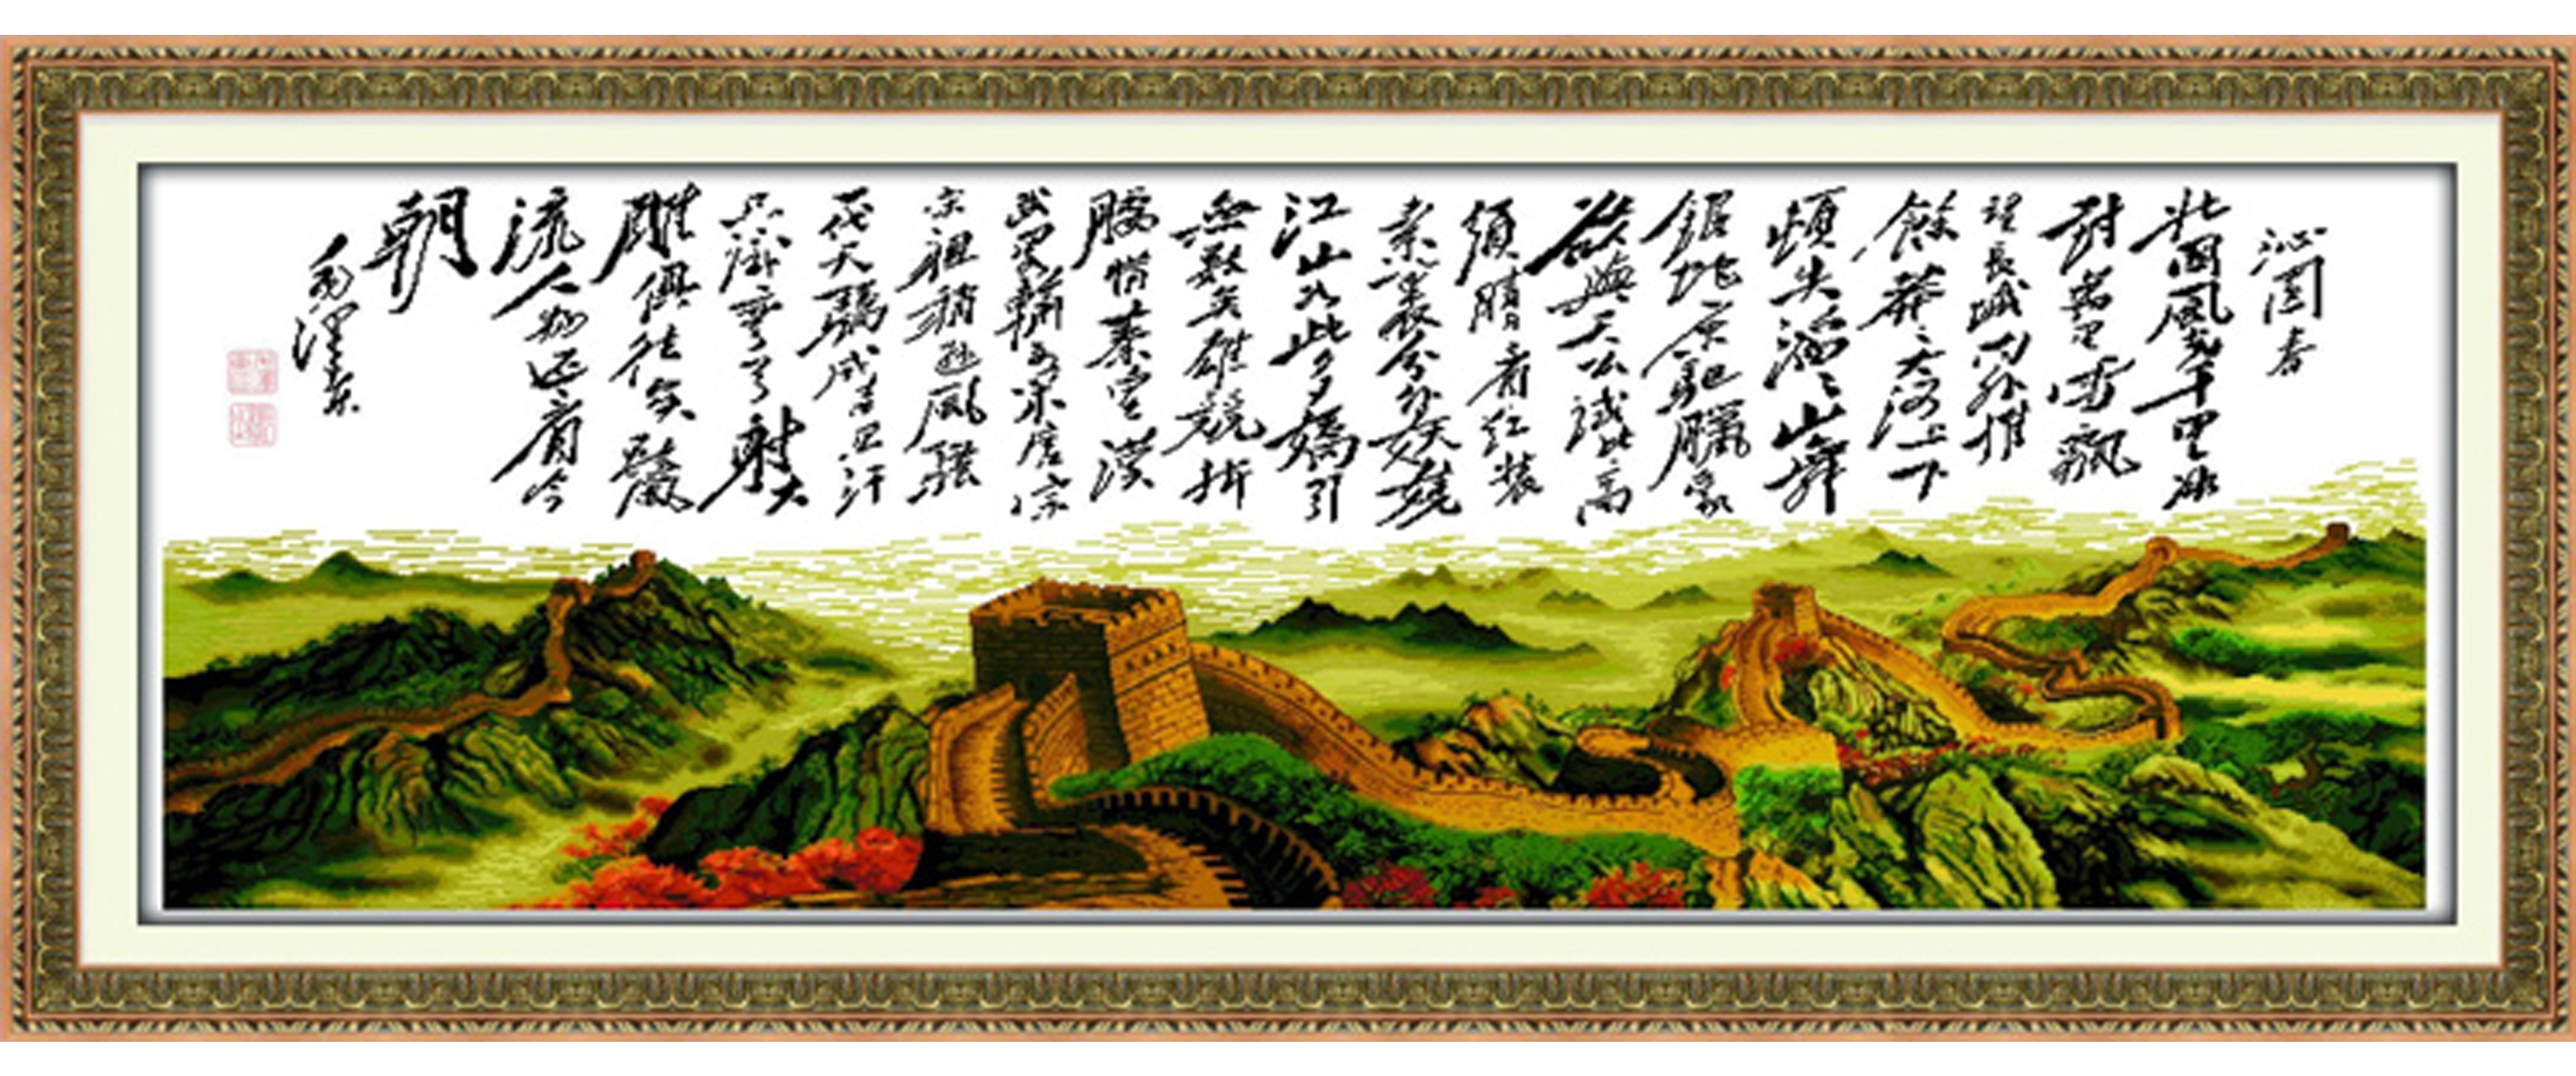 沁園春
北國風光千里冰
封萬里雪飄
望長城內外惟
餘莽々大河上下
頓失滔々山舞
銀蛇原馳臘象
欲與天公試比高
須晴日看紅裝
素裹分外妖嬈
江山如此多嬌引
無數英雄競折
腰惜秦皇漢
武略輸文采唐宗
宋祖稍遜風騷
一代天驕成吉思汗
只識彎弓射大
雕俱往矣數風
流人物還看今
朝
毛澤東